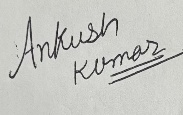 Ankush
Kumar